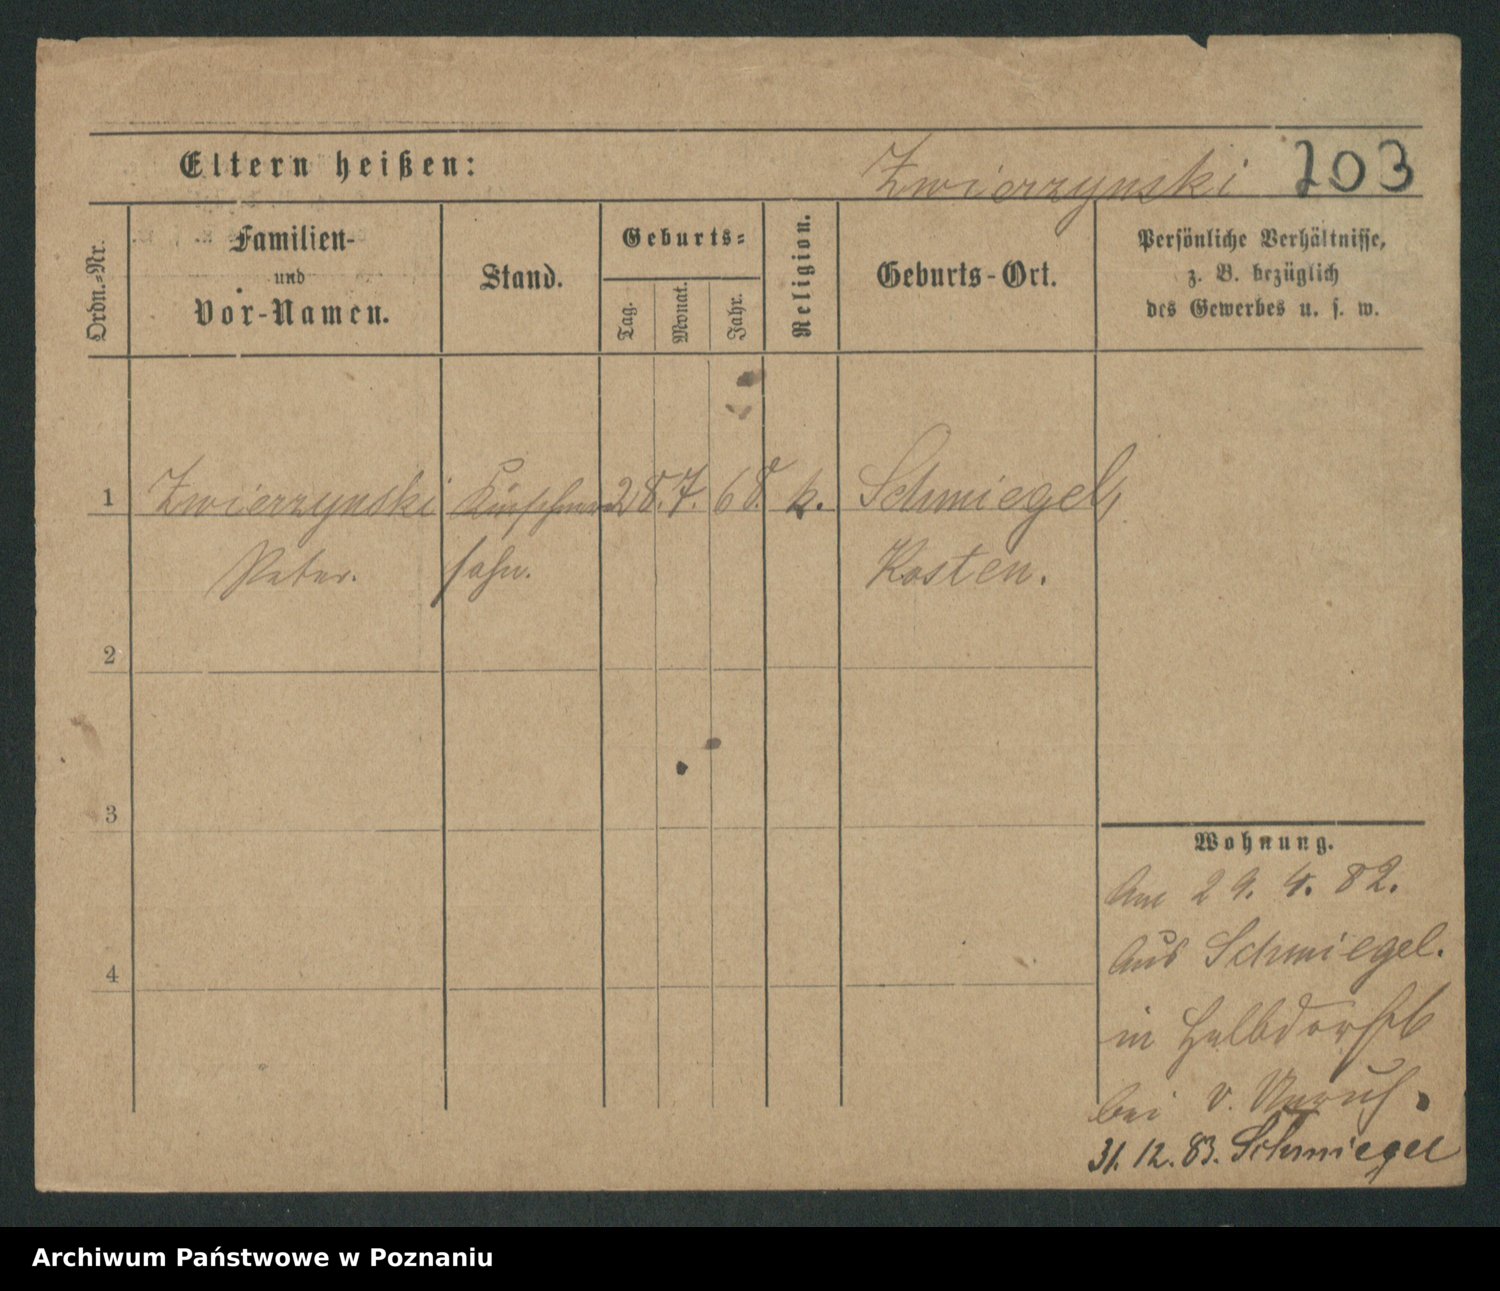 Eltern heißen: Zwierzynski 203
Ordn.-Nr.
Familien-
und
Vor-Namen.
Stand.
Geburts-
Tag.
Monat.
Jahr.
Religion.
Geburts-Ort.
Persönliche Verhältnisse,
z. B. bezüglich
des Gewerbes u. s. w.
1 Zwierzynski 28. 7. 68. k. Schmiegel,
Peter. sohn. Kosten.
2
3
4
Wohnung.
Am 29. 4. 82.
Aus Schmiegel.
in Halbdorfst
bei v. Unruh.
31. 12. 83. Schmiegel
Archiwum Państwowe w Poznaniu